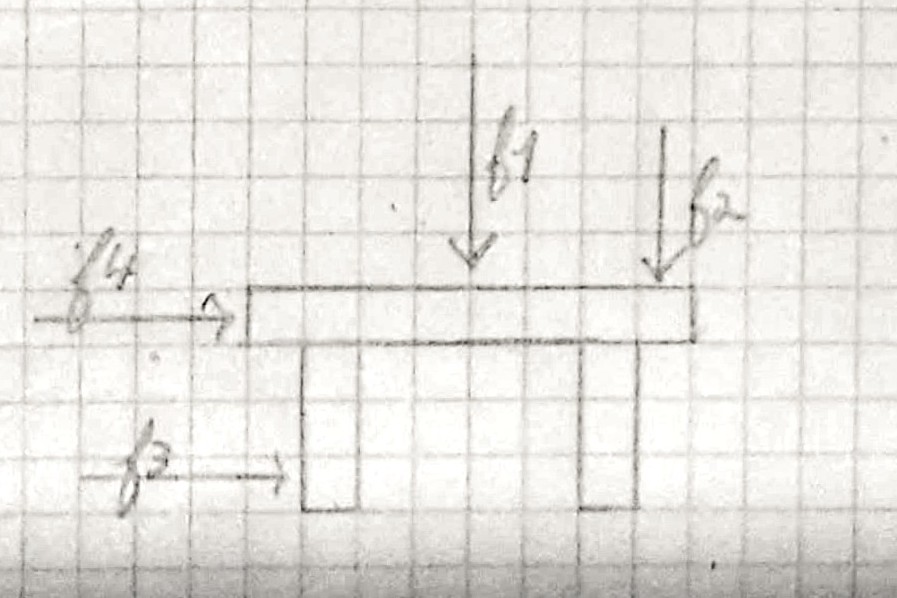 f1
f2
f4
f3